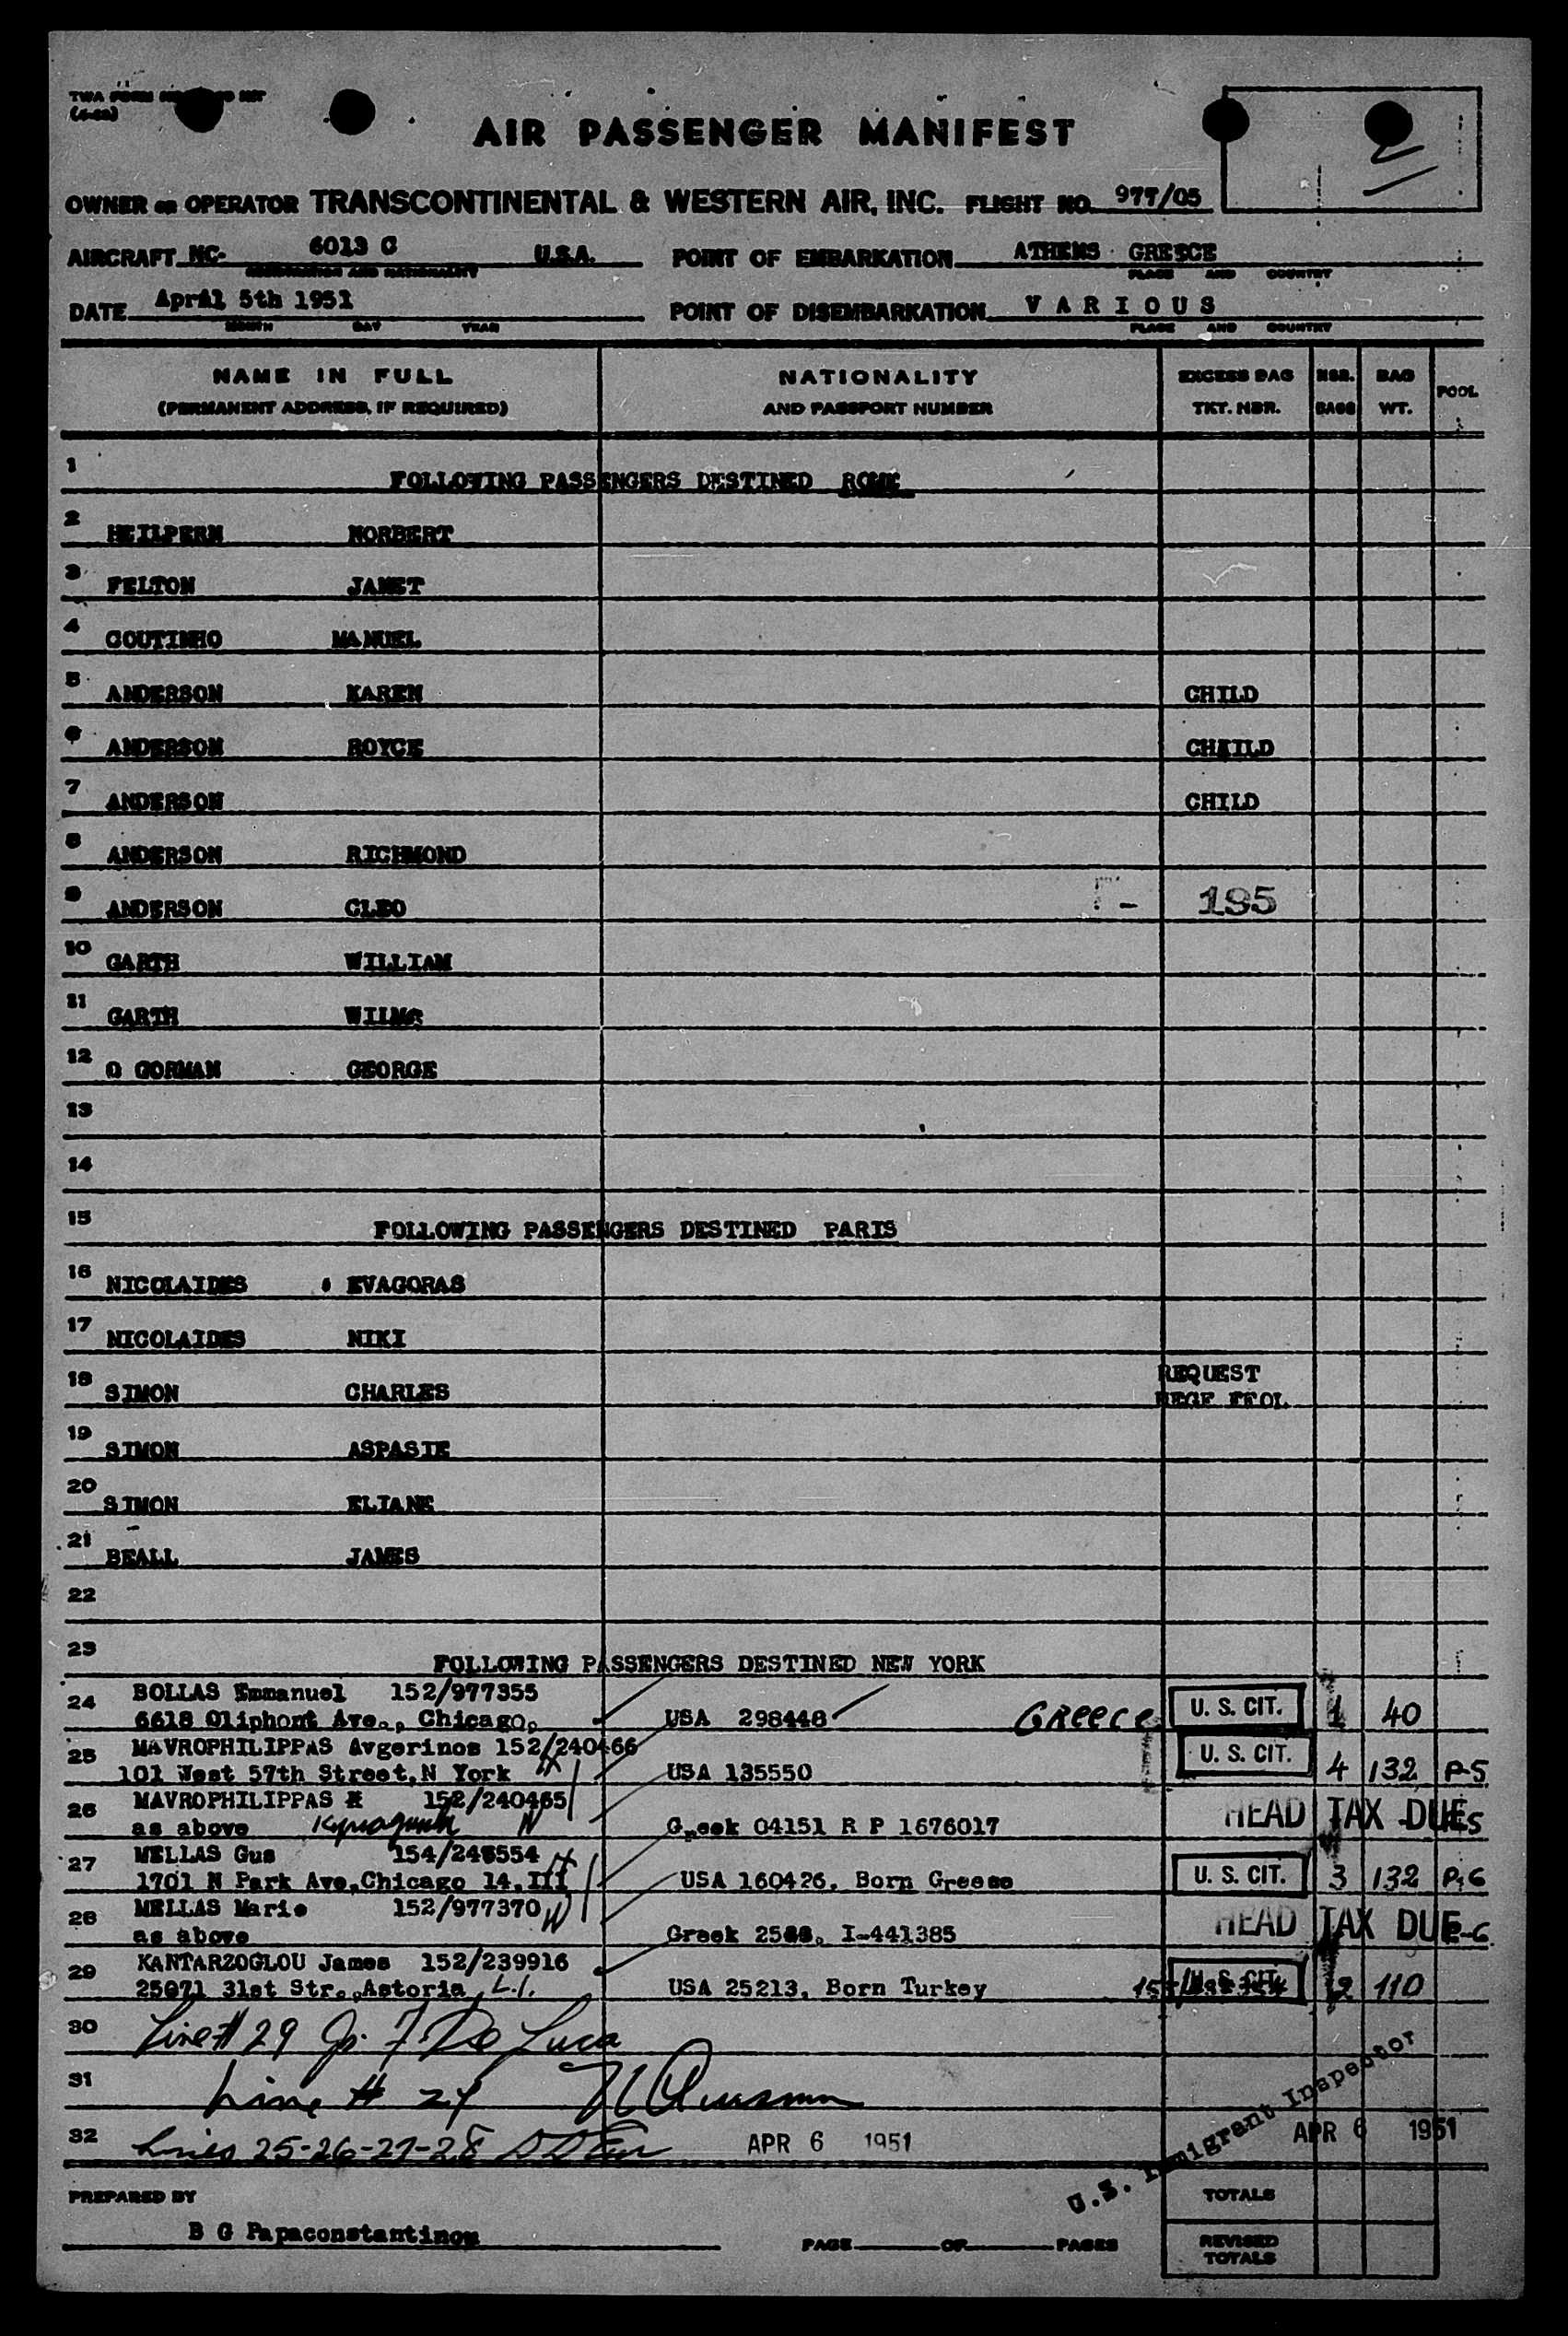 TWA FORM
AIR PASSENGER MANIFEST
OWNER OR OPERATOR TRANSCONTINENTAL & WESTERN AIR, INC. FLIGHT NO. 977/05
AIRCRAFT NC- 6013 C U.S.A. POINT OF EMBARKATION ATHENS GREECE
REGISTRATION AND NATIONALITY PLACE AND COUNTRY
DATE April 5th 1951 POINT OF DISEMBARKATION V A R I O U S
MONTH DAY YEAR PLACE AND COUNTRY
NAME IN FULL NATIONALITY EXCESS BAG NBR. BAG POOL
(PERMANENT ADDRESS, IF REQUIRED) AND PASSPORT NUMBER TKT. NBR. BAGS WT.
1 FOLLOWING PASSENGERS DESTINED ROME
2 HEILPERN NORBERT
3 FELTON JANET
4 COUTINHO MANUEL
5 ANDERSON KAREN CHILD
6 ANDERSON ROYCE CHAILD
7 ANDERSON CHILD
8 ANDERSON RICHMOND
9 ANDERSON CLEO - 195
10 GARTH WILLIAM
11 GARTH WILMA
12 O GORMAN GEORGE
13
14
15 FOLLOWING PASSENGERS DESTINED PARIS
16 NICOLAIDES EVAGORAS
17 NICOLAIDES NIKI
18 SIMON CHARLES REQUEST
19 SIMON ASPASIE
20 SIMON ELIANE
21 BEALL JAMES
22
23 FOLLOWING PASSENGERS DESTINED NEW YORK
24 BOLLAS Emmanuel 152/977355
6618 Oliphont Ave., Chicago, USA 298448 GReece U. S. CIT. 1 40
25 MAVROPHILIPPAS Avgerinos 152/240466
101 West 57th Street, N York H USA 135550 U. S. CIT. 4 132 P-5
26 MAVROPHILIPPAS K 152/240465
as above W Greek 04151 R P 1676017 HEAD TAX DUE
27 MELLAS Gus 154/248554 H
1701 N Park Ave, Chicago 14, Ill USA 160426, Born Greece U. S. CIT. 3 132 P-6
28 MELLAS Marie 152/977370 W
as above Greek I-441385 HEAD TAX DUE P-6
29 KANTARZOGLOU James 152/239916
25071 31st Str., Astoria, L.I. USA 25213, Born Turkey U. S. CIT. 2 110
30 Line # 29 De Luca
31 Line # 24
32 Lines 25-26-27-28 APR 6 1951
U.S. Immigrant Inspector APR 6 1951
PREPARED BY TOTALS
B G Papaconstantinou PAGE OF PAGES REVISED
TOTALS